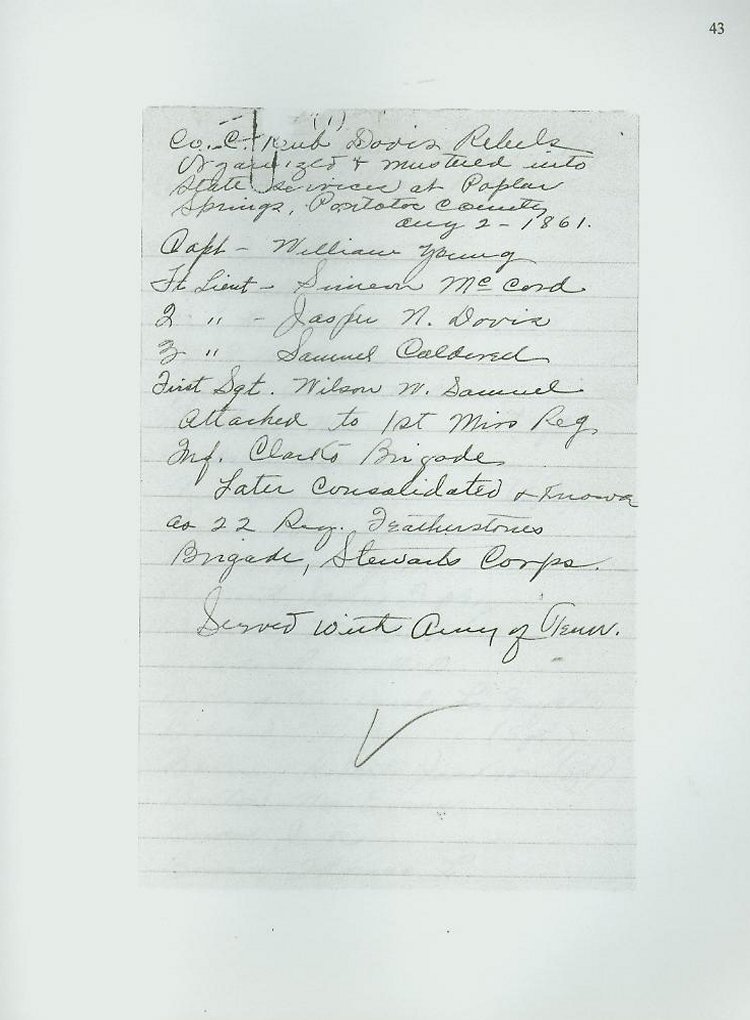 43
(1)
Co. C. Reub Davis Rebels
Organized & mustered into
State services at Poplar
Springs, Pontotoc County
Aug 2 - 1861.
Capt - William Young
1st Lieut - Simeon McCord
2 " - Jasper N. Davis
3 " Samuel
First Sgt. Wilson W. Samuel
Attached to 1st Miss Reg
Inf. Clarks Brigade
Later Consolidated & Known
as 22 Reg. Featherstones
Brigade, Stewarts Corps.
Served with Army of Tenn.